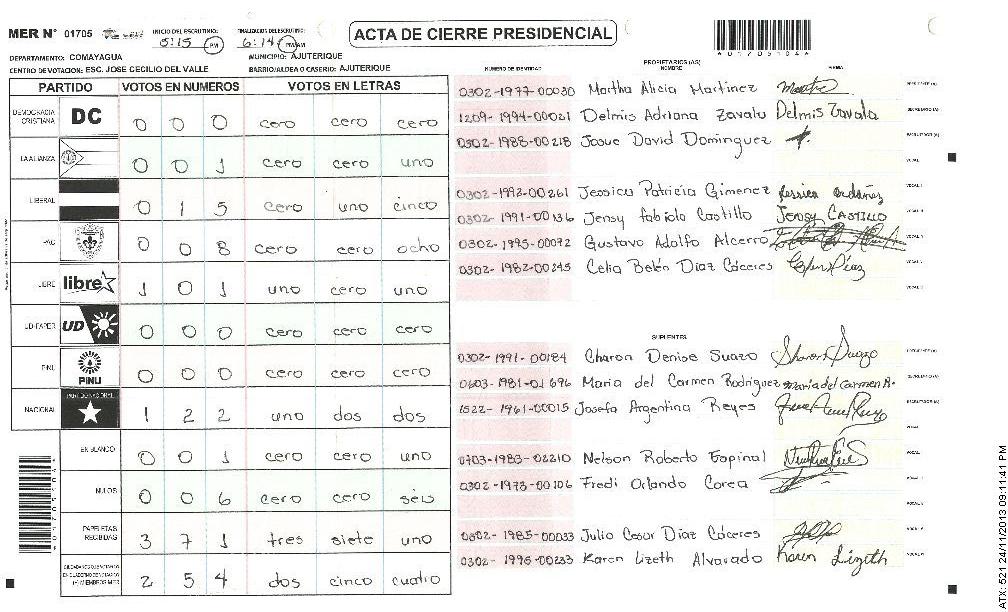 MER N° 01705
INICIO DEL ESCRUTINIO: 5:15 PM
FINALIZACION DEL ESCRUTINIO: 6:14 PM AM
ACTA DE CIERRE PRESIDENCIAL
DEPARTAMENTO: COMAYAGUA
MUNICIPIO: AJUTERIQUE
CENTRO DE VOTACION: ESC. JOSE CECILIO DEL VALLE
BARRIO/ALDEA O CASERIO: AJUTERIQUE
PARTIDO VOTOS EN NUMEROS VOTOS EN LETRAS
DEMOCRACIA CRISTIANA DC 0 0 0 cero cero cero
LA ALIANZA 0 0 1 cero cero uno
LIBERAL 0 1 5 cero uno cinco
PAC 0 0 8 cero cero ocho
LIBRE libre 1 0 1 uno cero uno
UD-FAPER UD 0 0 0 cero cero cero
PINU PINU 0 0 0 cero cero cero
NACIONAL PARTIDO NACIONAL 1 2 2 uno dos dos
EN BLANCO 0 0 1 cero cero uno
NULOS 0 0 6 cero cero séis
PAPELETAS RECIBIDAS 3 7 1 tres siete uno
2 5 4 dos cinco cuatro
NUMERO DE IDENTIDAD
PROPIETARIOS (AS)
NOMBRE
FIRMA
0302-1977-00030 Martha Alicia Martinez
1209-1994-00021 Delmis Adriana Zavala Delmis Zavala
0302-1988-00218 Josue David Dominguez
0302-1992-00261 Jessica Patricia Gimenez
0302-1991-00136 Jensy fabiola Castillo JENSY CASTILLO
0302-1995-00072 Gustavo Adolfo Alcerro
0302-1982-00245 Celia Belén Díaz Cáceres
SUPLENTES
0302-1991-00184 Charon Denise Suazo Sharon Suazo
0603-1981-01696 Maria del Carmen Rodriguez maria del carmen R.
1522-1961-00015 Josefa Argentina Reyes
0703-1983-02210 Nelson Roberto Espinal
0302-1973-00106 Fredi Orlando Corea
0302-1985-00033 Julio Cesar Díaz Cáceres
0302-1996-00233 Karen Lizeth Alvarado Karen Lizeth
ATX: 521 24/11/2013 09:11:41 PM